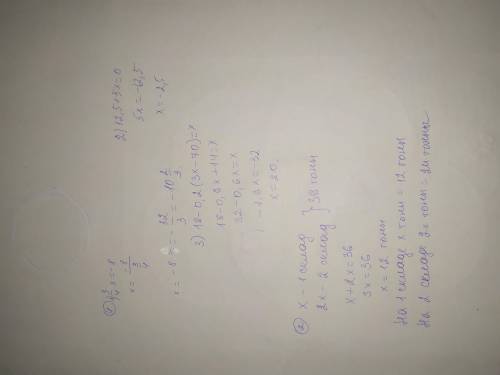 ① 3/4 x = -8
x = -8 / 3/4
x = -8 : = -32/3 = -10 2/3
2) 12,5+3x=0
5x=-62,5
x=-2,5
3) 18-0,2(3x-70)=x
18-0,6x+14=x
32-0,6x=x
-1,6x=-32
x=20.
② x - 1 склад
2x - 2 склад } 38 тонны
x+2x=36
3x=36
x=12 тонны
На 1 складе x тонн = 12 тонн
На 2 складе 2x тонны = 24 тонны